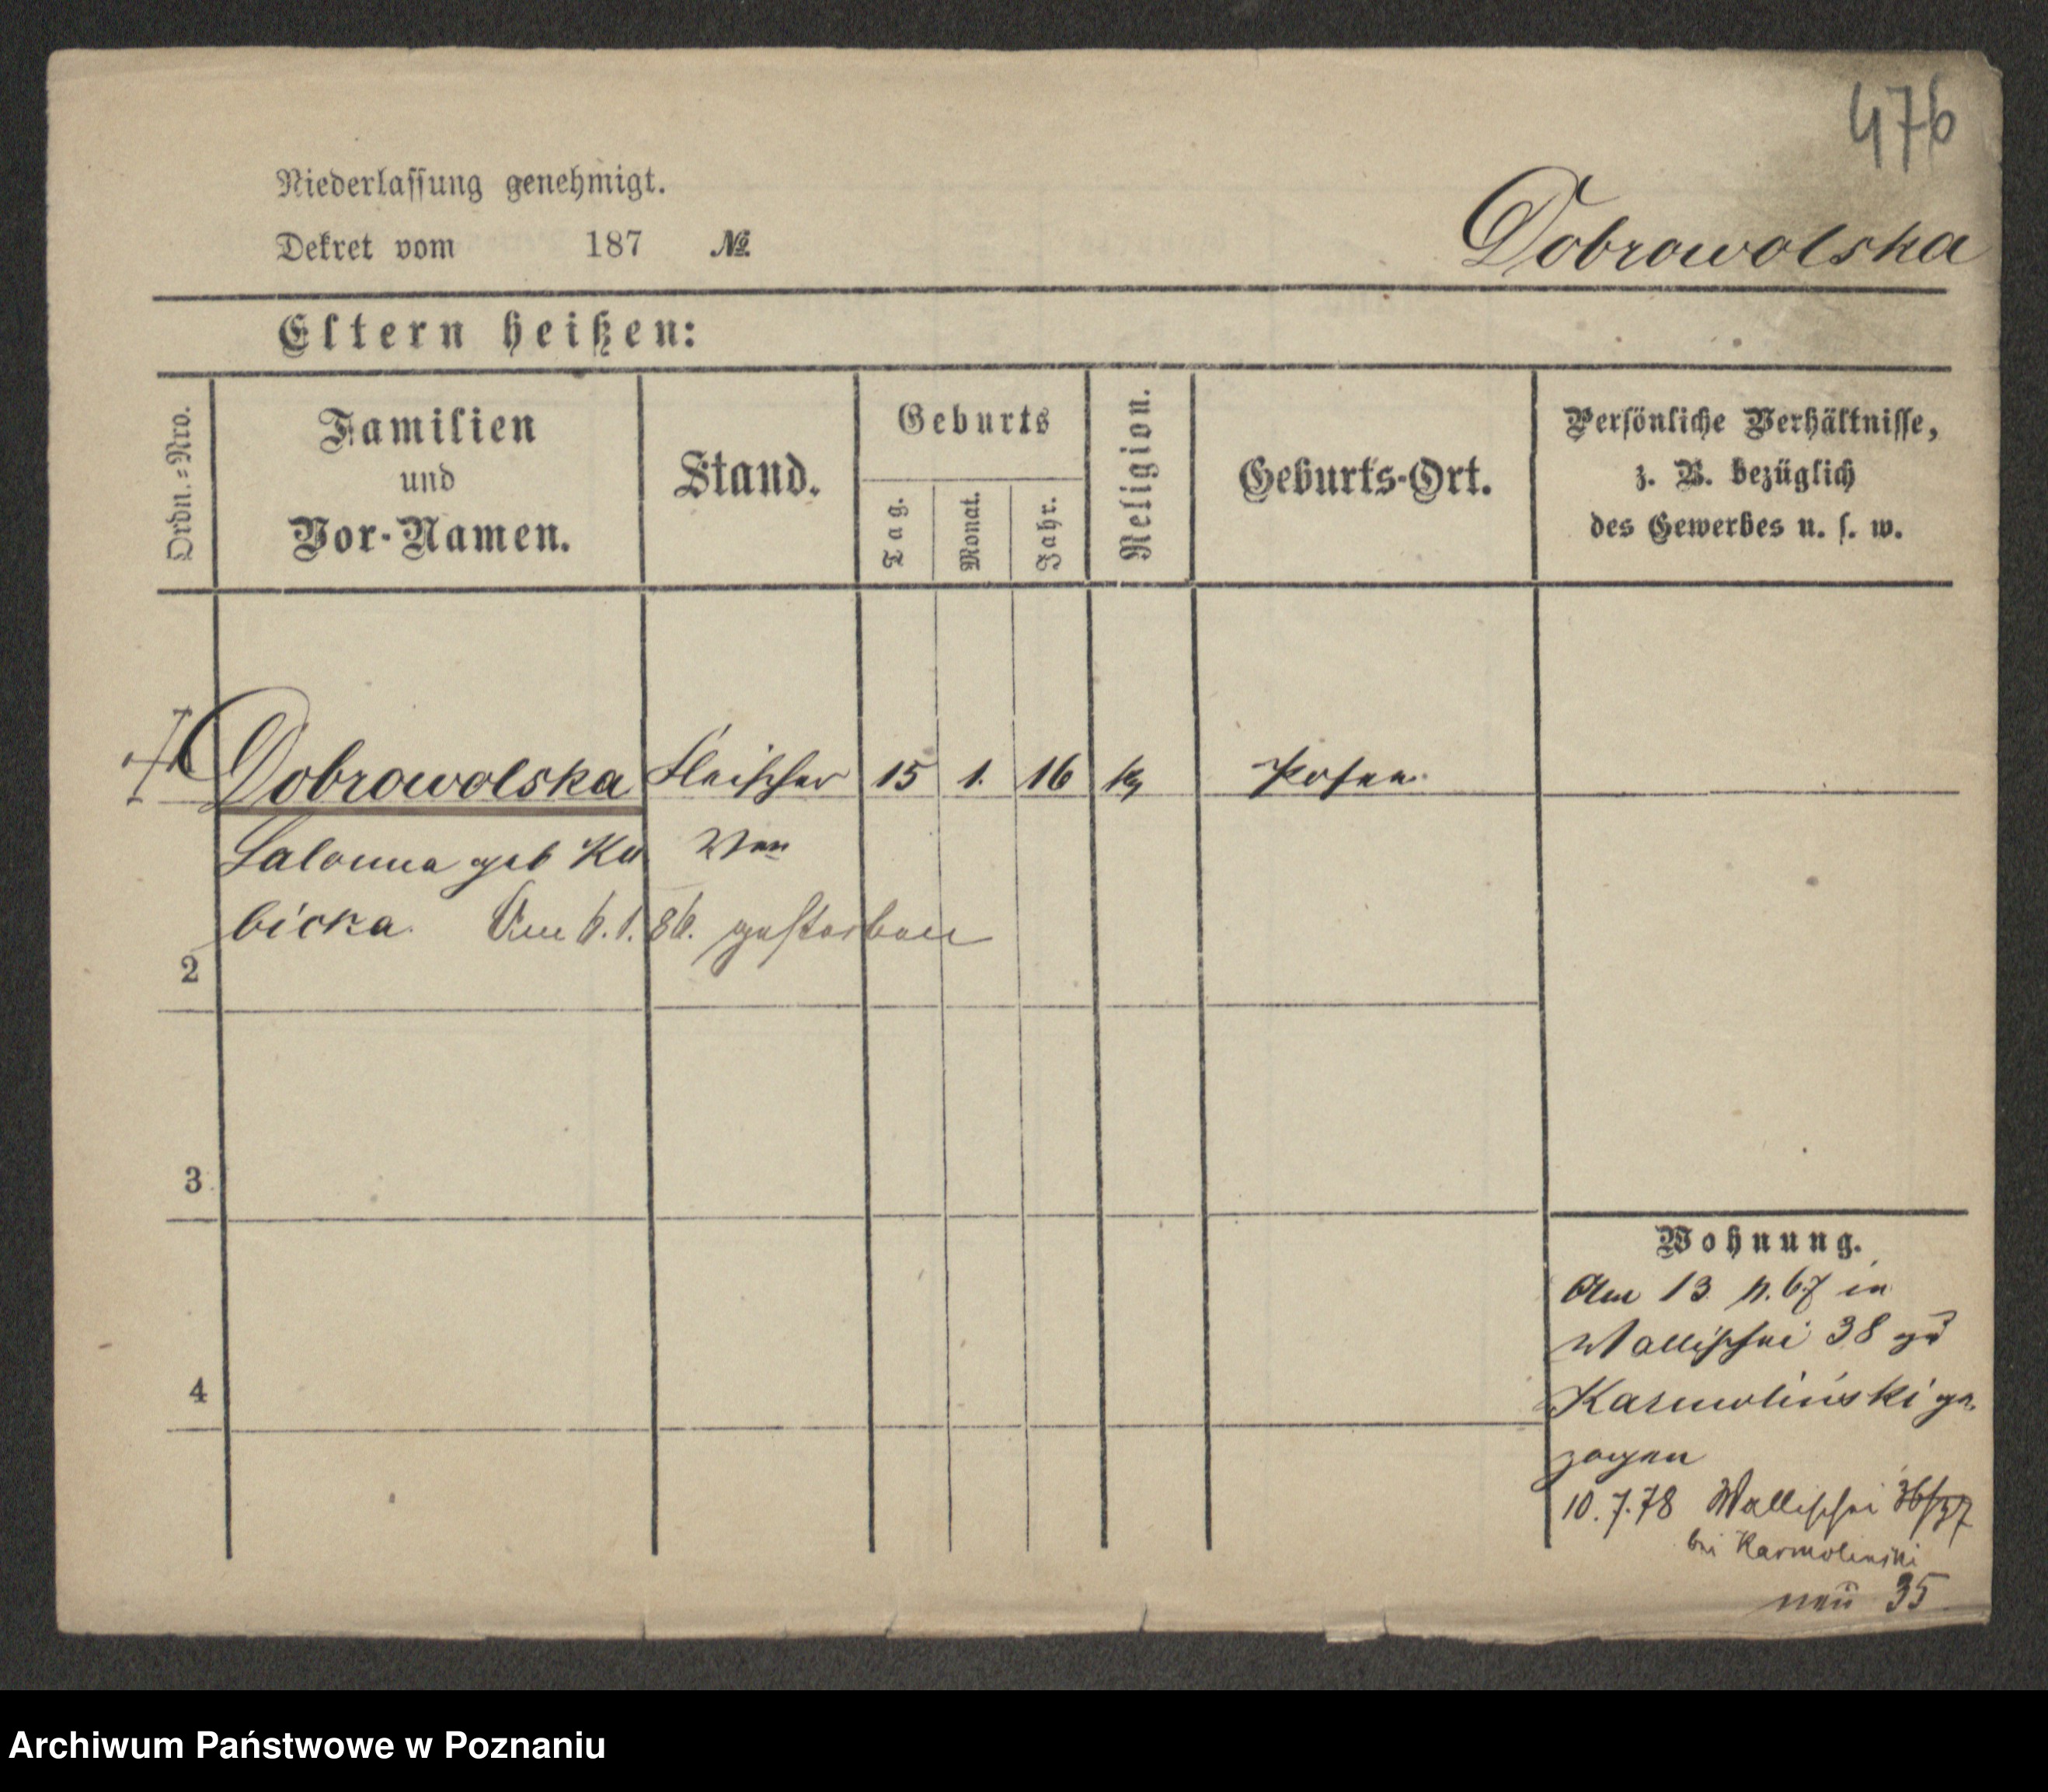 476
Niederlassung genehmigt.
Dekret vom 187 №
Dobrowolska
Eltern heißen:
Ordn.=Nro.
Familien
und
Vor-Namen.
Stand.
Geburts
Tag.
Monat.
Jahr.
Religion.
Geburts-Ort.
Persönliche Verhältnisse,
z. B. bezüglich
des Gewerbes u. s. w.
Dobrowolska Fleischer 15 1. 16 Posen
geb Ku
bicka. Am 6.1.86. gestorben
2
3
4
Wohnung.
Am 13 67 in
Wallischei 38 zu
Karmolinski ge-
zogen
10.7.78 Wallischei 36/37
bei Karmolinski
neu 35
Archiwum Państwowe w Poznaniu